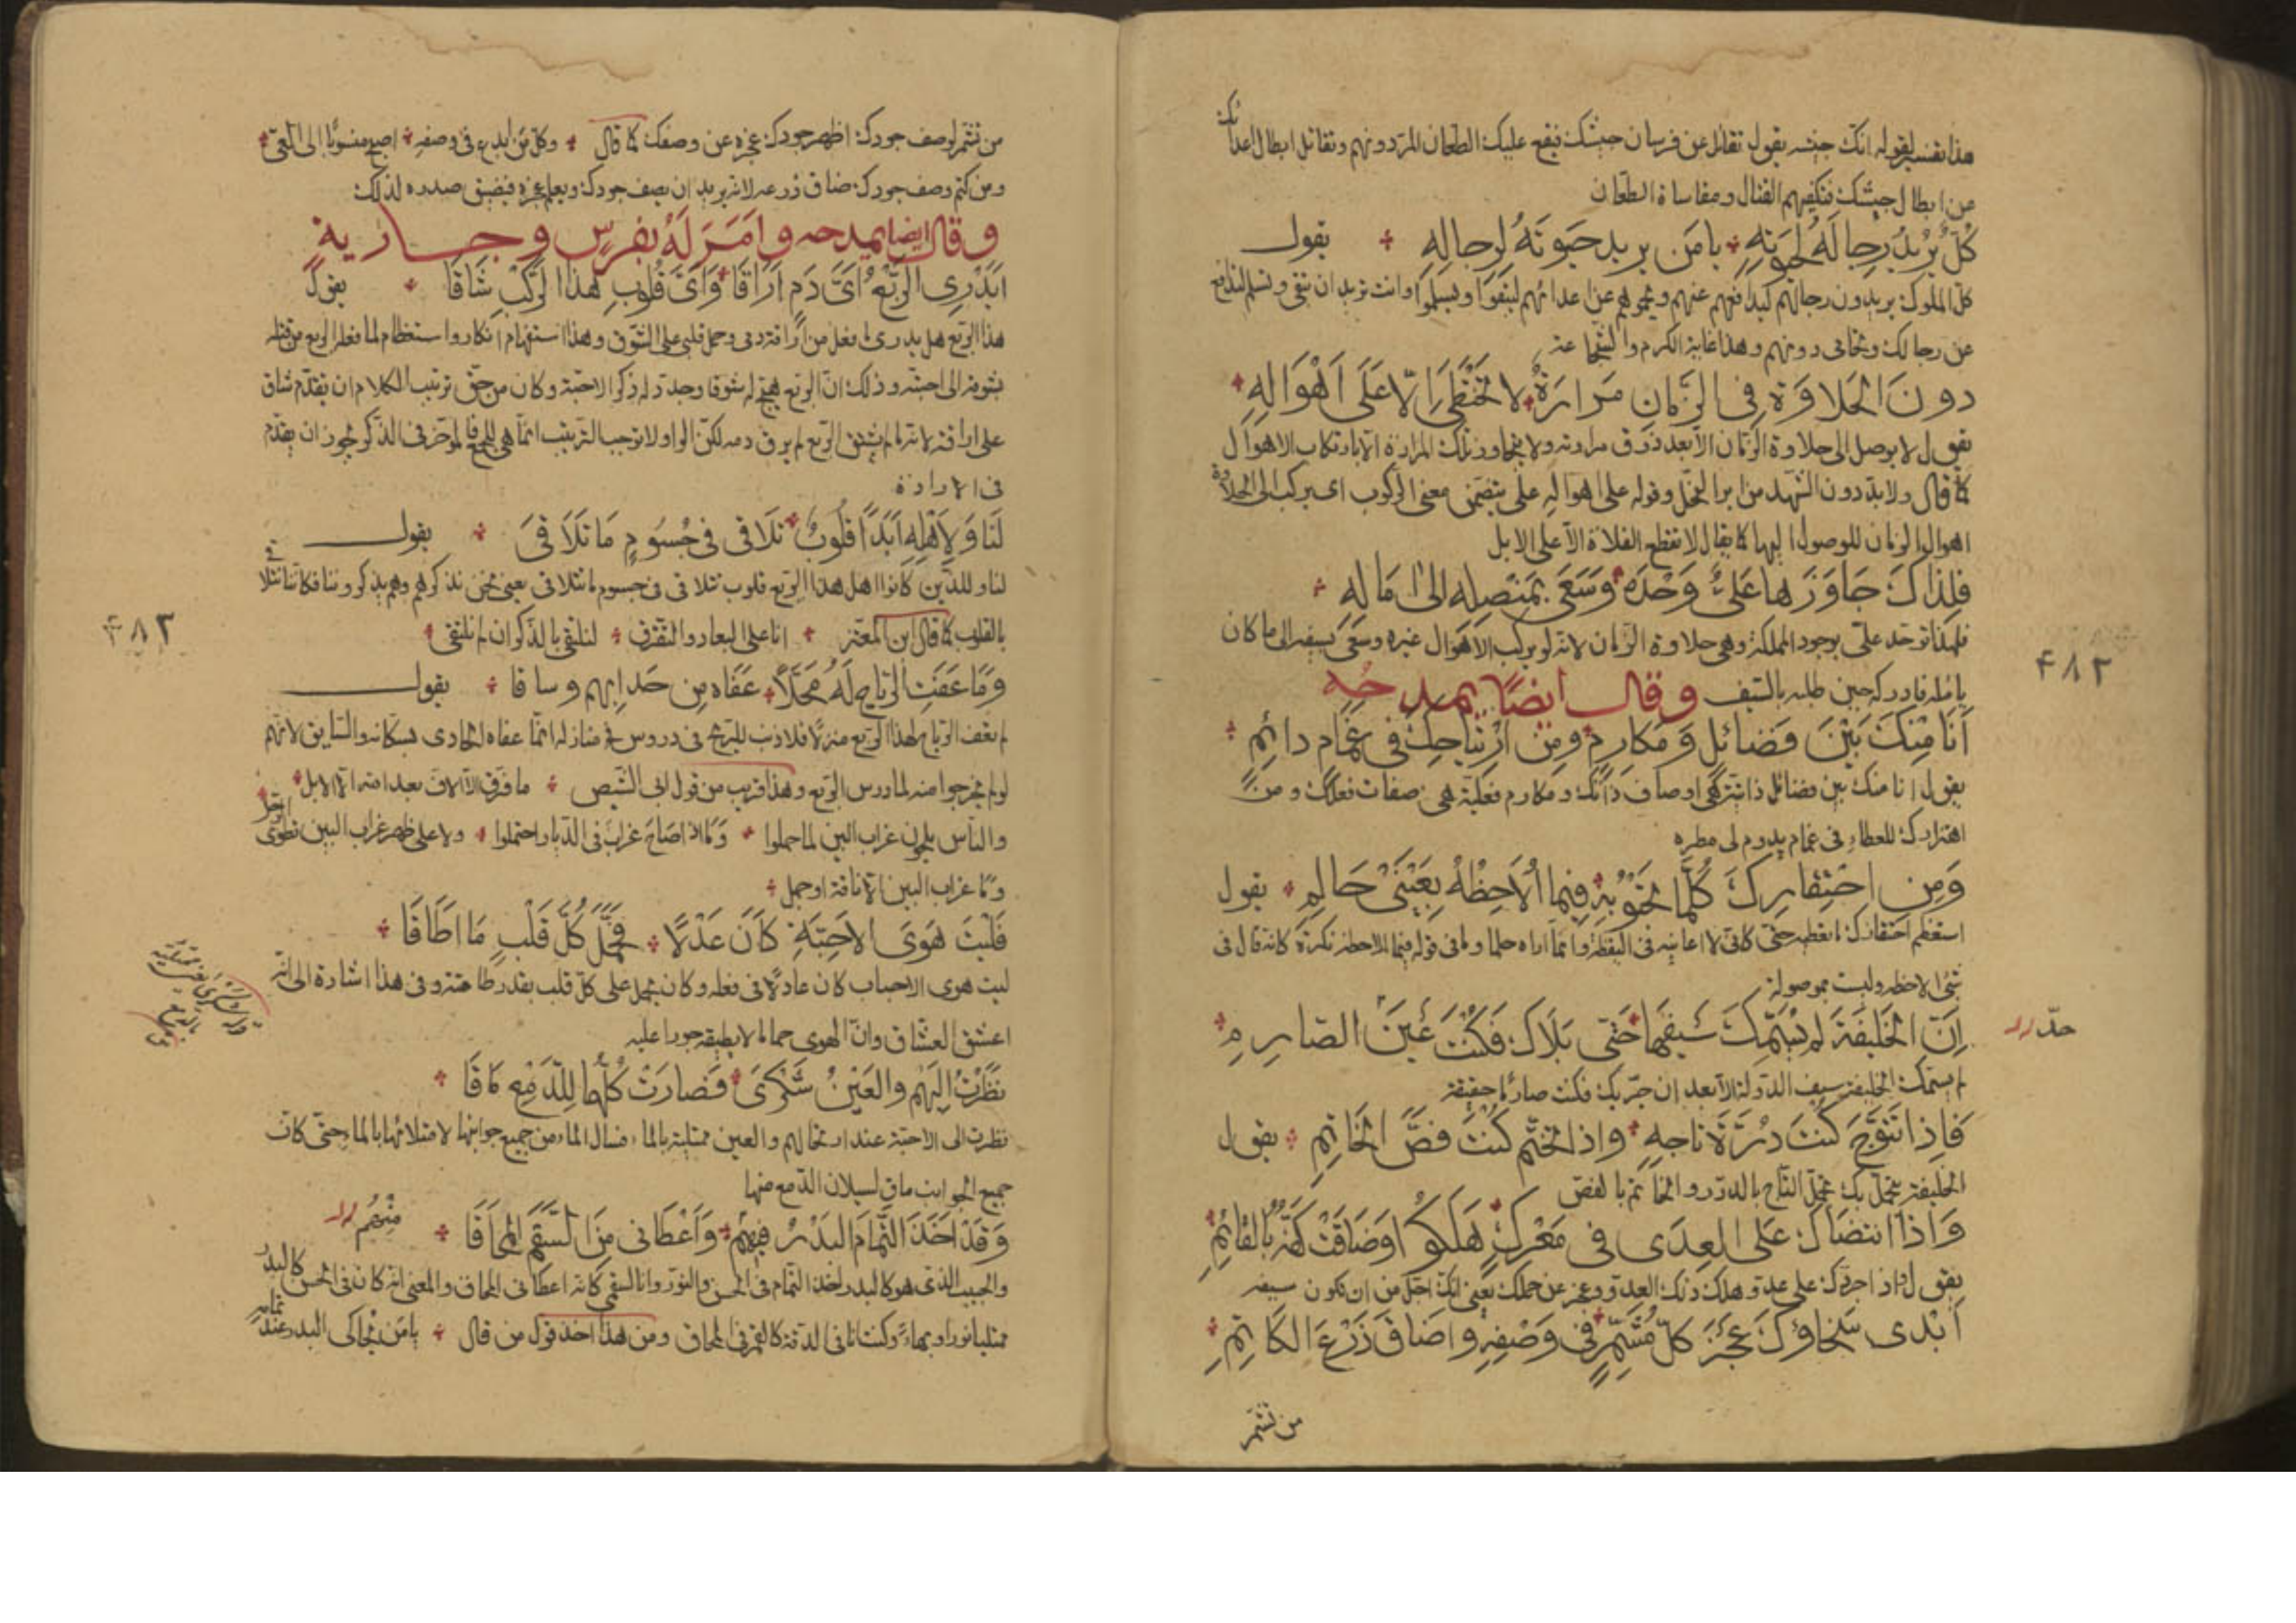 هذا تفسير لقوله انك جيشه يقول تقاتل عن فرسان جيشك فيقع عليك الطعان المرّ دونهم وتقاتل ابطال اعدائك
عن ابطال جيشك فتكفيهم القتال ومقاساة الطعان
كُلٌّ يُرِيدُ رِجالَهُ لِحَيٰوتِهِ يا مَن يريد حَيوتَهُ لِرجالِهِ يقول
كلّ الملوك يريدون رجالهم ليدافعهم عنهم ويحموهم عن اعدائهم ليبقوا ويسلموا وانت تريد ان تبقى وتسلم لتدافع
عن رجالك وتحامى دونهم وهذا غاية الكرم والشجاعة
دونَ الحَلاوَةِ فى الزَّمانِ مَرارَةٌ لا تُختَطَى اِلّا عَلَى اَهْوَالِهِ
يقول لا يوصل الى حلاوة الزمان الا بعد ذوق مرارته ولا يتجاوز تلك المرارة الا بارتكاب الاهوال
كما قال ولا بدّ دون الشهد من ابر النحل وقوله على اهواله على يتضمّن معنى الركوب اى يركب الى الحلاوة
اهوال الزمان للوصول اليها كما يقال لا تقطع الفلاة الا على الابل
فَلِذاكَ جاوَزَها عَلِىٌّ وَحْدَهُ وَسَعَى بِمُنصُلِهِ الى آمالِهِ
فلهذا توحّد علىّ بوجود المملكة وهى حلاوة الزمان لانه لم يركب الاهوال غيره وسعى بسيفه الى ما كان
يامله فادركه حين طلبه بالسّيف وقال ايضًا يمدحه
٤٨٢
اَنَا مِنكَ بَيْنَ فَضائلٍ وَمَكارِمٍ ومِن ارْتِياحِكَ فى غَمامٍ دائمِ
يقول انا منك بين فضائل ذاتية هى اوصاف ذاتك ومكارم فعلية هى صفات فعلك ومن
اهتزازك للعطاء فى غمام يدوم لى مطره
وَمِن احتِقارِكَ كُلَّما تَحْبُو بِهِ فيما اُلاحِظُهُ بِعَيْنَىْ حالِمِ يقول
استعظم احتقارك ما تعطيه حتى كانى لا اعاينه فى اليقظة وانما اراه حلما وما فى قوله فيما الاحظه نكرة كانه قال فى
شئ الاحظه وليست بموصولة
اِنَّ الخَليفَةَ لم يُسَمِّكَ سَيفَها حَتى بَلاكَ فَكُنْتَ عَيْنَ الصّارِمِ
حدّ
لم يسمك الخليفة سيف الدولة الا بعد ان جرّبك فكنت صارما حقيقة
فَاِذا تَتَوَّجَ كُنتَ دُرَّةَ تاجِهِ واذا تختّم كُنتَ فَصَّ الخاتِمِ يقول
الخليفة يتجمّل بك تجمّل التاج بالدرّ والخاتم بالفصّ
وَاذا انتَضاكَ عَلى العِدَى فى مَعْرَكٍ هَلَكُوا وَضاقَتْ كَفُّهُ بِالقائمِ
يقول واذا جرّدك على عدوّ هلك ذلك العدوّ وعجز عن حملك يعنى انك اجلّ من ان تكون سيفه
اَبْدى سَخاؤكَ عَجْزَ كلّ مُشَمِّرٍ فى وَصْفِهِ واَضاقَ ذَرْعَ الكاتِمِ
من تشمّر
من تشمّر لوصف جودك اظهر جودك عجزه عن وصفك كما قال وكلّ من ابدع فى وصفه اصبح منسوبا الى العىّ
ومن كتم وصف جودك ضاق ذرعه لانه يريد ان يصف جودك ويعلم عجزه فيضيق صدره لذلك
وقال ايضا يمدحه وامَرَ لَهُ بفرسٍ وجارية
اَيَدْرِى الرَّبْعُ اَىَّ دَمٍ اَراقا وَاَىَّ قُلُوبِ هذا الرَّكْبِ شَاقَا يقول
هذا الربع هل يدرى ما فعل من اراقة دمى وحمل قلبى على الشوق وهذا استفهام انكار واستعظام لما فعل الربع من قتله
بشوقه الى احبته وذلك انّ الربع هيّج له شوقا وجدّد له ذكر الاحبّة وكان من حقّ ترتيب الكلام ان يقدّم شاق
على اراق لانه ما لم يشق الربع لم يرق دمه لكن الواو لا توجب الترتيب انما هى للجمع فالمؤخر فى الذكر يجوز ان يقدّم
فى الارادة
لَنا وَلِاَهْلِهِ اَبَدًا قُلُوبٌ تَلاقى فى جُسُومٍ ما تَلاقَى يقول
لنا وللذين كانوا اهل هذا الربع قلوب تتلاقى فى جسوم ما تتلاقى يعنى نحن نذكرهم وهم يذكروننا فكاننا نتلاقى
بالقلوب كما قال ابن المعتز انا على البعاد والتفرّق لنلتقى بالذكر ان لم نلتقى
٤٨٣
وَما عَفَتِ الرّياحُ لَهُ مَحَلّاً عَفَاه مِن حَدا بِهِم وساقا يقول
لم تعف الرياح لهذا الربع منزلا فلا ذنب للريح فى دروس منازله انما عفاه الحادى بسكانه والسايق لانهم
لو لم يخرجوا منه لما درس الربع وهذا قريب من قول ابى الشيص ما فرّق الالاف بعد الله الا الابل
والناس يلحون غراب البين لما جهلوا وما اذا صاح غراب فى الديار احتملوا ولا على ظهر غراب البين تطوى الرحل
وما غراب البين الا ناقة او جمل
فَلَيْتَ هَوَى الاَحِبَّةِ كانَ عَدْلًا فَحَمَّلَ كُلَّ قَلْبٍ ما اَطاقَا
ليت هوى الاحباب كان عادلا فى فعله وكان يحمل على كلّ قلب بقدر طاقته وفى هذا اشارة الى انه
اعشق العشاق وانّ الهوى حمله ما لا يطيقه جورا عليه
نَظَرْتُ اِلَيْهِم والعَيْنُ شَكْرَى فَصارَتْ كُلُّها لِلدّمْعِ ماقا
نظرت الى الاحبّة عند ارتحالهم والعين ممتلية بالماء فسال الماء من جميع جوانبها لامتلائها بالماء حتى كان
جميع الجوانب ماق لسيلان الدمع منها
وَقَدْ اَخَذَ التَّمامَ البَدْرُ فيهِم وَاَعْطانى مِنَ السَّقَمِ المُحاقَا
منهم
والحبيب الذى هو كالبدر اخذ التمام فى الحسن والنور وانا السقم كانه اعطانى المحاق والمعنى انه كان فى الحسن كالبدر
ممتليا نورا وبهاء وكنت انا فى الدقة كالقمر فى المحاق ومن هذا اخذ قول من قال يا من يحاكى البدر عند تمامه